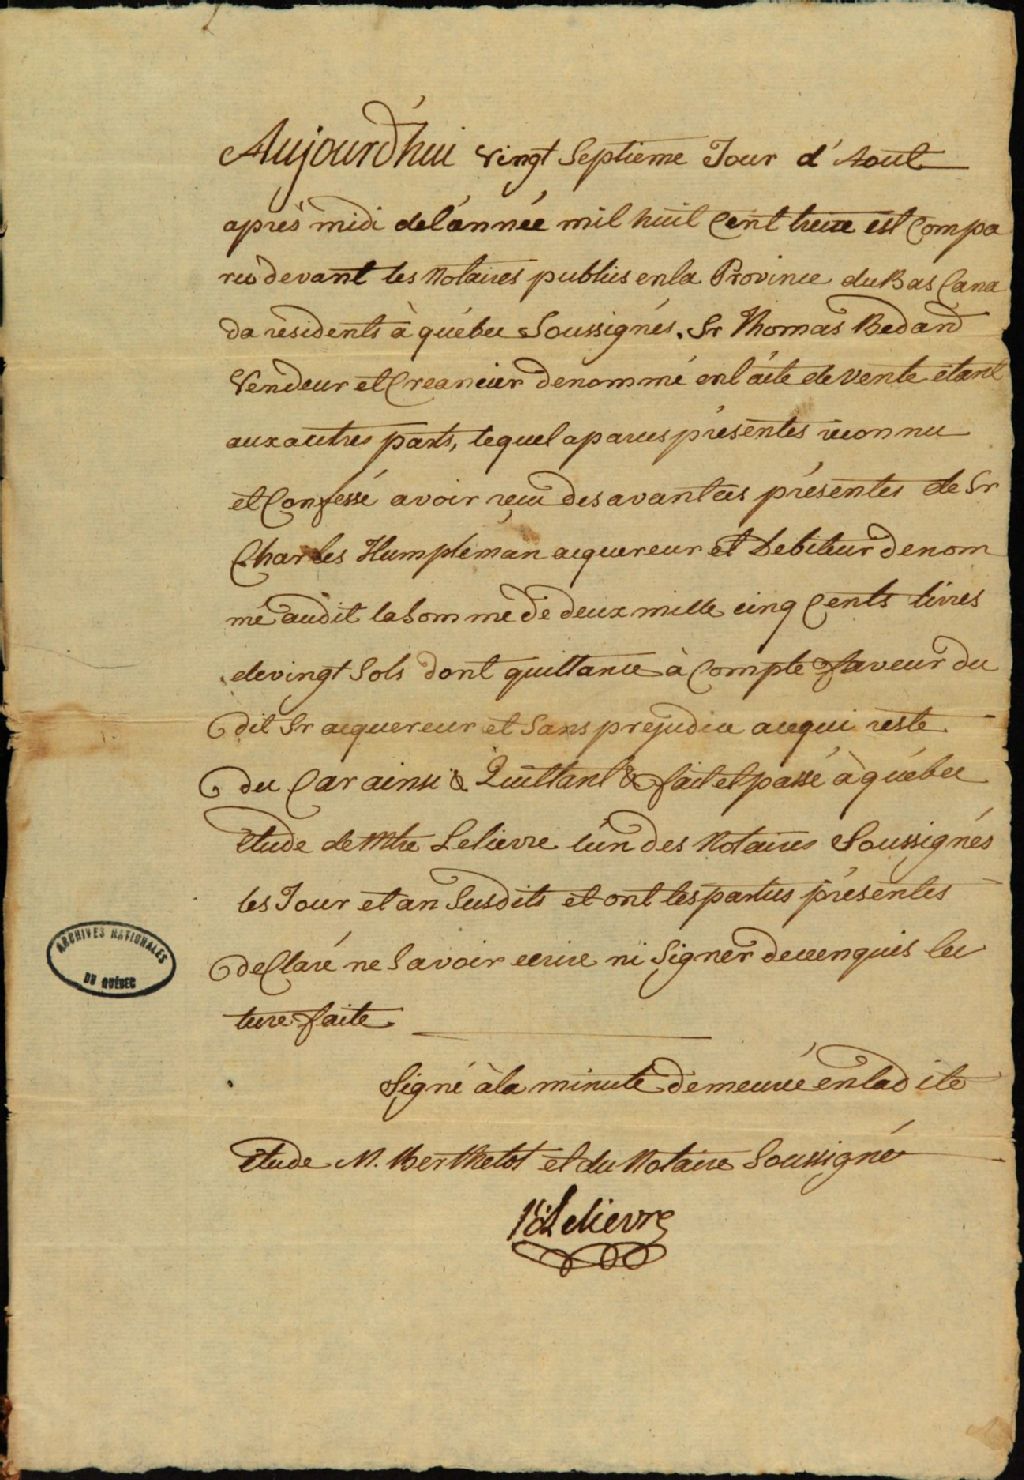 Aujourd'hui vingt Septieme Jour d'Aout
après midi de l'année mil huit Cent treize est Compa
ru devant les Notaires publics en la Province du Bas Cana
da résidents à québec Soussignés, Sr Thomas Bedard
Vendeur et Creancier denommé en l'acte de vente etant
aux autres parts, lequel a par ces présentes reconnu
et Confessé avoir reçu des avant ces présentes de Sr
Charles Humpleman acquereur et Debiteur denom
mé audit la somme de deux mille cinq Cents livres
de vingt Sols dont quittance à Compte faveur du
dit Sr acquereur et Sans prejudice a ce qui reste
du Car ainsi & Quittant & fait et passé à québec
étude de Mtre Lelievre l'un des Notaires Soussignés
les Jour et an Susdits et ont les parties présentes
declaré ne Savoir ecrire ni Signer de ce enquis lec
ture faite
Signé à la minute demeurée en ladite
étude M. Berthelot et du Notaire Soussigné
Lelievre
ARCHIVES NATIONALES
DU QUÉBEC